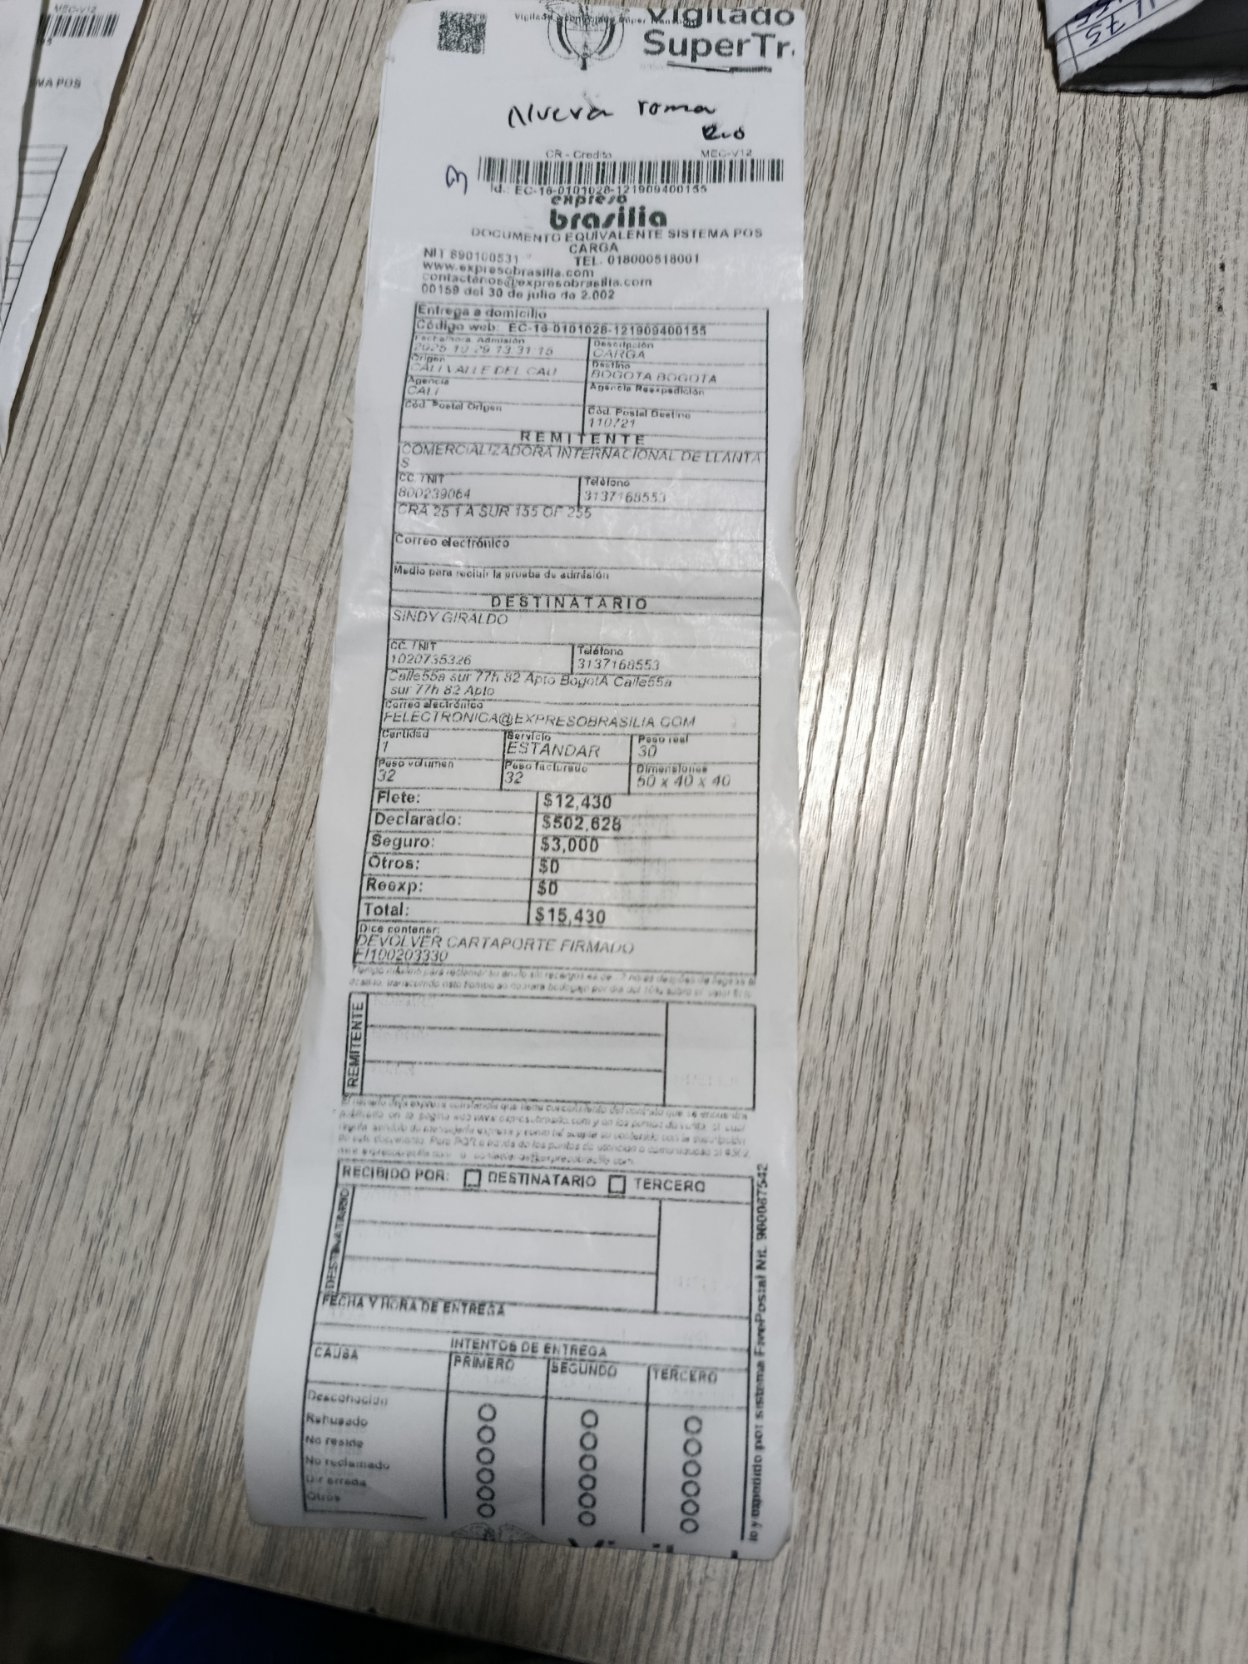 MEC-V12
MA POS
Vigilado
SuperTr.
Nueva roma
CR - Credito MEC-V12
Id.: EC-16-0101028-121909400155
expreso
brasilia
DOCUMENTO EQUIVALENTE SISTEMA POS
CARGA
NIT 890100531 TEL. 018000518001
www.expresobrasilia.com
contactenos@expresobrasilia.com
00159 del 30 de julio de 2.002
Entrega a domicilio
Código web: EC-16-0101028-121909400155
Fecha/hora Admisión Descripción
2025-10-29 13:31:15 CARGA
Origen Destino
CALI VALLE DEL CAU BOGOTA BOGOTA
Agencia Agencia Reexpedición
CALI
Cód. Postal Origen Cód. Postal Destino
110721
REMITENTE
COMERCIALIZADORA INTERNACIONAL DE LLANTA
S
CC. / NIT Teléfono
800239064 3137168553
CRA 25 1 A SUR 155 OF 255
Correo electrónico
Medio para recibir la prueba de admisión
DESTINATARIO
SINDY GIRALDO
CC. / NIT Teléfono
1020735326 3137168553
Calle55a sur 77h 82 Apto BogotA Calle55a
sur 77h 82 Apto
Correo electrónico
FELECTRONICA@EXPRESOBRASILIA.COM
Cantidad Servicio Peso real
1 ESTANDAR 30
Peso volumen Peso facturado Dimensiones
32 32 50 x 40 x 40
Flete: $12,430
Declarado: $502,628
Seguro: $3,000
Otros: $0
Reexp: $0
Total: $15,430
Dice contener:
DEVOLVER CARTAPORTE FIRMADO
FI100203330
REMITENTE
RECIBIDO POR: DESTINATARIO TERCERO
DESTINATARIO
FECHA Y HORA DE ENTREGA
INTENTOS DE ENTREGA
CAUSA PRIMERO SEGUNDO TERCERO
Desconocido
Rehusado
No reside
No reclamado
Dir errada
Otros
lo y expedido por sistema FivePostal Nit. 900087542